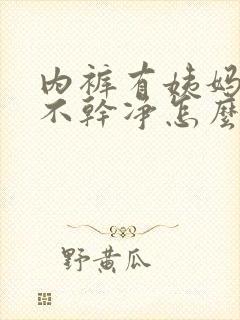 内裤有姨妈
不幹净怎麽
野黄瓜